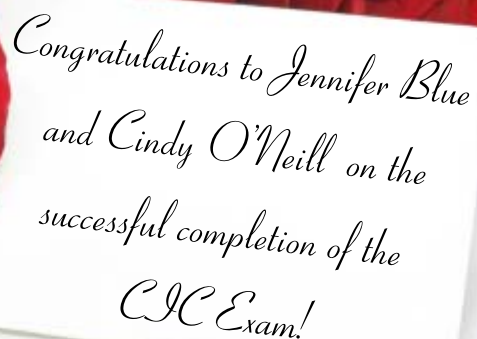 Congratulations to Jennifer Blue
and Cindy O'Neill on the
successful completion of the
CIC Exam!